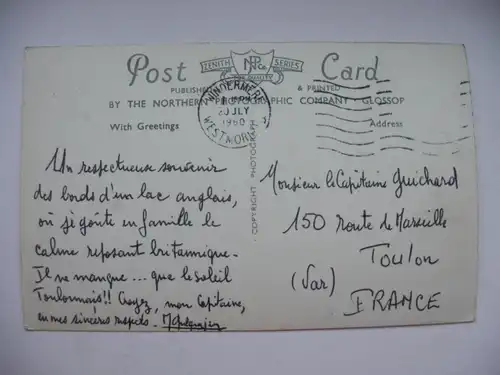 Post Card
ZENITH SERIES
NPCo.
PUBLISHED & PRINTED
BY THE NORTHERN PHOTOGRAPHIC COMPANY · GLOSSOP
With Greetings
Address
WINDERMERE
20 JLY
1960
WESTMORLAND
COPYRIGHT PHOTOGRAPH
Un respectueux souvenir
des bords d'un lac anglais,
où je goûte en famille le
calme reposant britannique.
Il ne manque... que le soleil
Toulonnais!! Croyez, mon Capitaine,
en mes sincères respects.
Monsieur le Capitaine Guichard
150 Route de Marseille
Toulon
(Var)
FRANCE